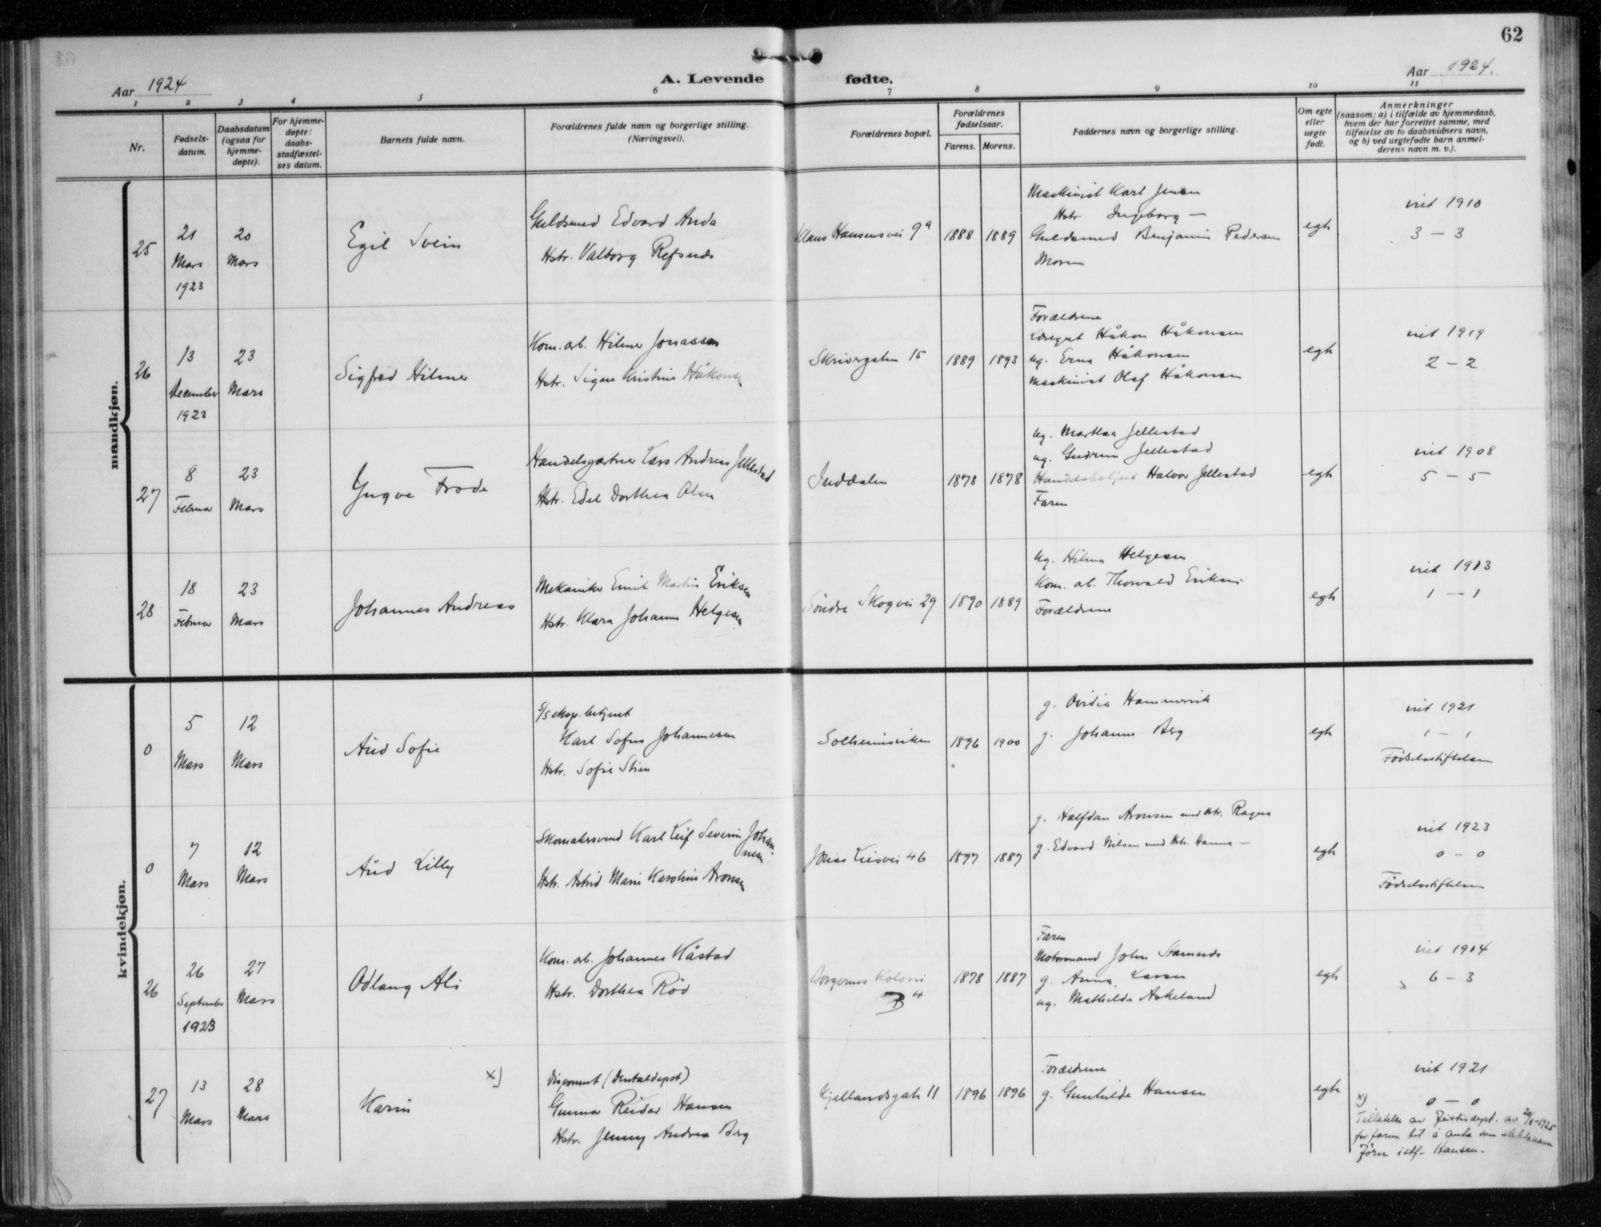 62
Aar 1924
A. Levende fødte.
Aar 1924.
1 2 3 4 5 6 7 8 9 10 11
Nr.
Fødsels-
datum.
Daabsdatum
(ogsaa for
hjemme-
døpte).
For hjemme-
døpte:
daabs-
stadfæstel-
ses datum.
Barnets fulde navn.
Forældrenes fulde navn og borgerlige stilling.
(Næringsvei).
Forældrenes bopæl.
Forældrenes
fødselsaar.
Farens. Morens.
Faddernes navn og borgerlige stilling.
Om egte
eller
uegte
født.
Anmerkninger
(saasom: a) i tilfælde av hjemmedaab,
hvem der har forrettet samme, med
tilføielse av to daabsvidners navn,
og b) ved uegtefødte barn anmel-
derens navn m. v.).
mandkjøn.
25
21
Mars
1923
20
Mars
Egil Svein
Guldsmed Edvard Anda
Hstr. Valborg Refsnes
Klaus Hansens vei 9a
1888 1889
Maskinist Karl Jensen
Hstr. Ingeborg —
Guldsmed Benjamin Pedersen
Moren
egte
viet 1910
3 – 3
26
13
December
1923
23
Mars
Sigfred Hilmer
Kom. arb. Hilmer Jonassen
Hstr. Signe Kristine Håkonsen
Skivergaten 15
1889 1893
Forældrene
Håkon Håkonsen
ug. Erna Håkonsen
Maskinist Olaf Håkonsen
egte
viet 1919
2 – 2
27
8
Februar
23
Mars
Yngve Frode
Handelsgartner Lars Andreas Jellestad
Hstr. Edel Dorthea Olsen
Inddalen
1878 1878
ug. Marthea Jellestad
ug. Gudrun Jellestad
Handelsbetjent Halvor Jellestad
Faren
egte
viet 1908
5 – 5
28
18
Februar
23
Mars
Johannes Andreas
Mekaniker Emil Martin Eriksen
Hstr. Klara Johanne Helgesen
Søndre Skogvei 29
1890 1889
ug. Hilma Helgesen
Kom. arb. Thorvald Eriksen
Forældrene
egte
viet 1913
1 – 1
kvindekjøn.
0
5
Mars
12
Mars
Aud Sofie
S/s eksp. betjent
Karl Sofus Johannesen
Hstr. Sofie Stien
Solheimsviken
1896 1900
g. Ovidia Hammersvik
g. Johanne Berg
egte
viet 1921
1 – 1
Fødselsstiftelsen
0
7
Mars
12
Mars
Aud Lilly
Skomakersvend Karl Leif Severin Johan-
nesen
Hstr. Astrid Marie Karoline Aronsen
Jonas Liesvei 46
1897 1887
g. Halfdan Aronsen med Hstr. Ragna
g. Edvard Nilsen med Hstr. Hanna —
egte
viet 1923
0 – 0
Fødselsstiftelsen
26
26
September
1923
27
Mars
Odlaug Ali
Kom. arb. Johannes Kåstad
Hstr. Dorthea Rød
4
1878 1887
Faren
Motormand John Stamnes
g. Anna Larsen
ug. Mathilde Askeland
egte
viet 1904
6 – 3
27
13
Mars
28
Mars
Karin
x)
Disponent (Dentaldepot)
Gunnar Reidar Hansen
Hstr. Jenny Andrea Berg
Kjellandsgate 11
1896 1896
Forældrene
g. Gunhilde Hansen
egte
viet 1921
0 – 0
x)
Tillatelse av Justisdept. av 1925
for faren til å anta som slektsnavn
Jörn istf. Hansen.